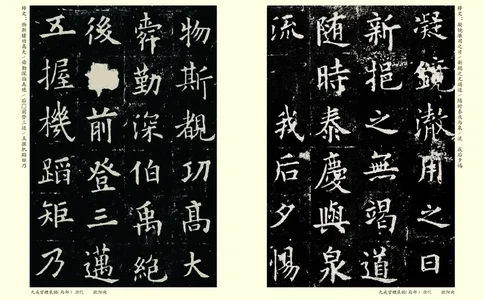 凝鏡澈用之日
新挹之無竭道
随時泰慶與泉
流 我后夕惕
物斯覩功高大
舜勤深伯禹絶
後 前登三邁
五握機蹈矩乃
九成宮醴泉銘(局部) 唐代 歐陽詢
九成宮醴泉銘(局部) 唐代 歐陽詢